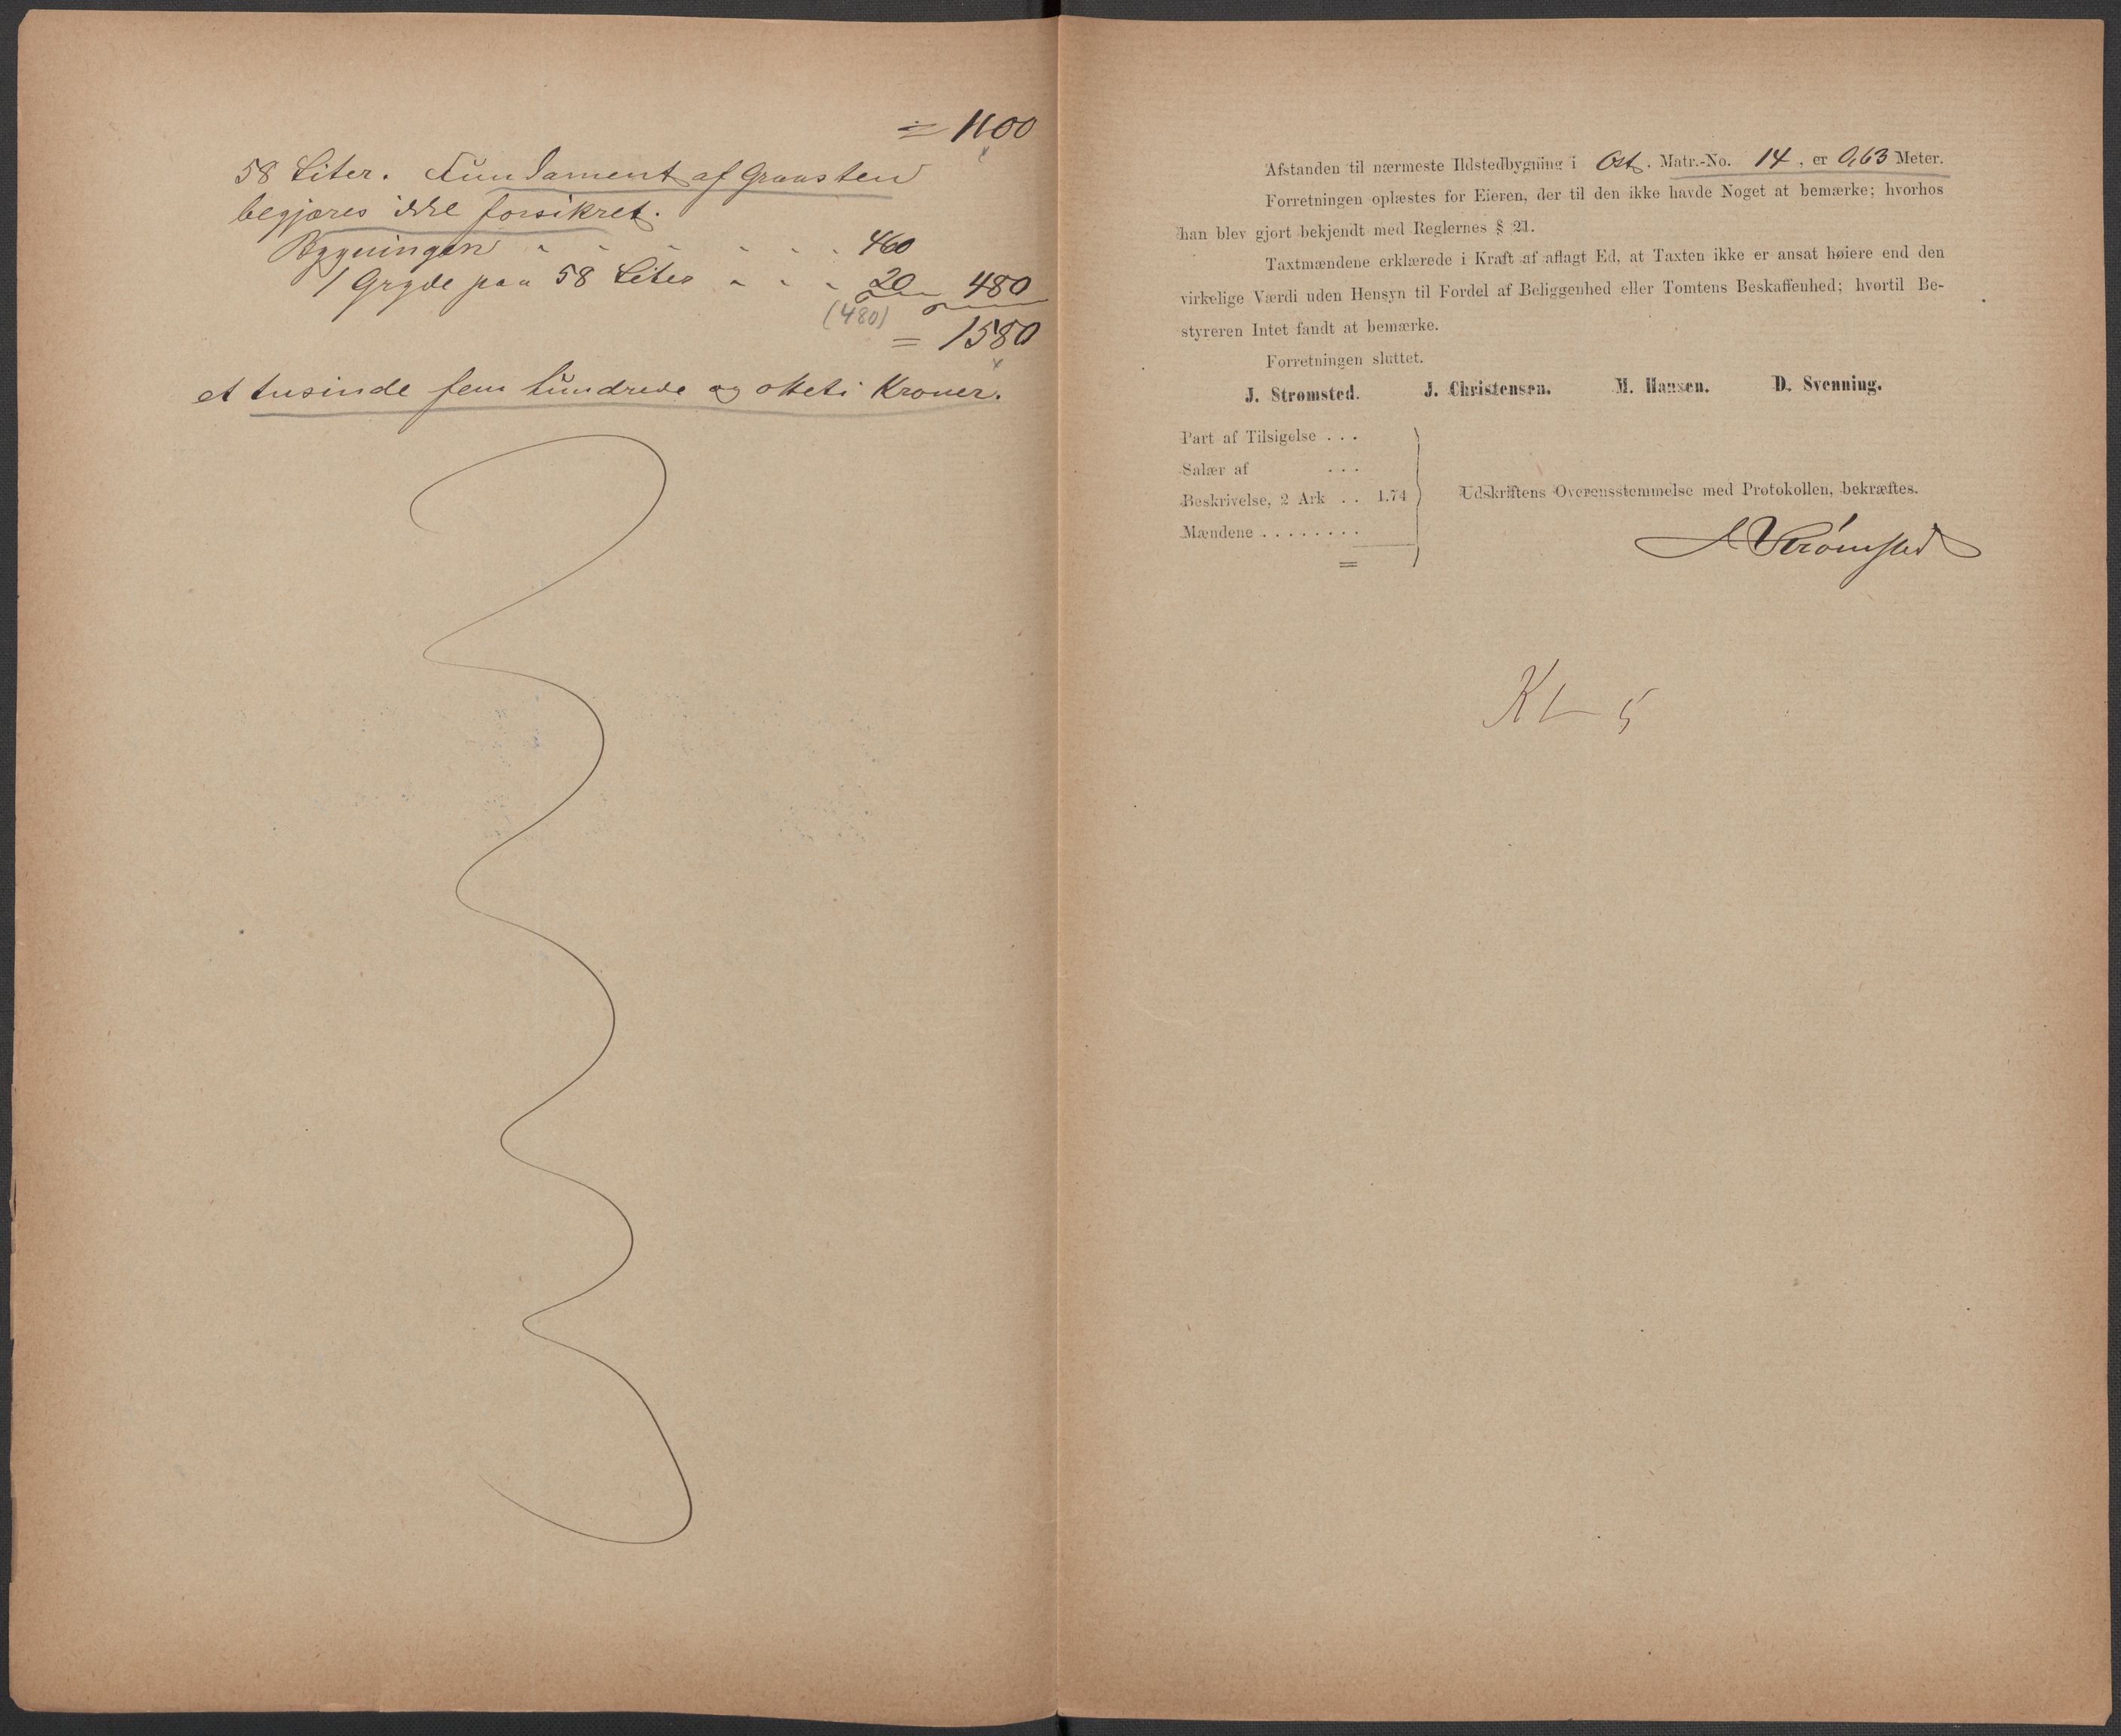 = 1100
58 Liter. Fundament af Graasten
begjæres ikke forsikret.
Bygningen - - - - - - 460
1 Gryde paa 58 Liter - - - 20 480
(480)
= 1580
et tusinde fem hundrede og otteti Kroner.
Afstanden til nærmeste Ildstedbygning i Øst. Matr.-No. 14, er 0,63 Meter.
Forretningen oplæstes for Eieren, der til den ikke havde Noget at bemærke; hvorhos
han blev gjort bekjendt med Reglernes § 21.
Taxtmændene erklærede i Kraft af aflagt Ed, at Taxten ikke er ansat høiere end den
virkelige Værdi uden Hensyn til Fordel af Beliggenhed eller Tomtens Beskaffenhed; hvortil Be-
styreren Intet fandt at bemærke.
Forretningen sluttet.
J. Strømsted. J. Christensen. M. Hansen. D. Svenning.
Part af Tilsigelse . . .
Salær af . . .
Beskrivelse, 2 Ark . . 1.74
Mændene . . . . . . . .
=
Udskriftens Overensstemmelse med Protokollen, bekræftes.
J Strømsted
Kl 5